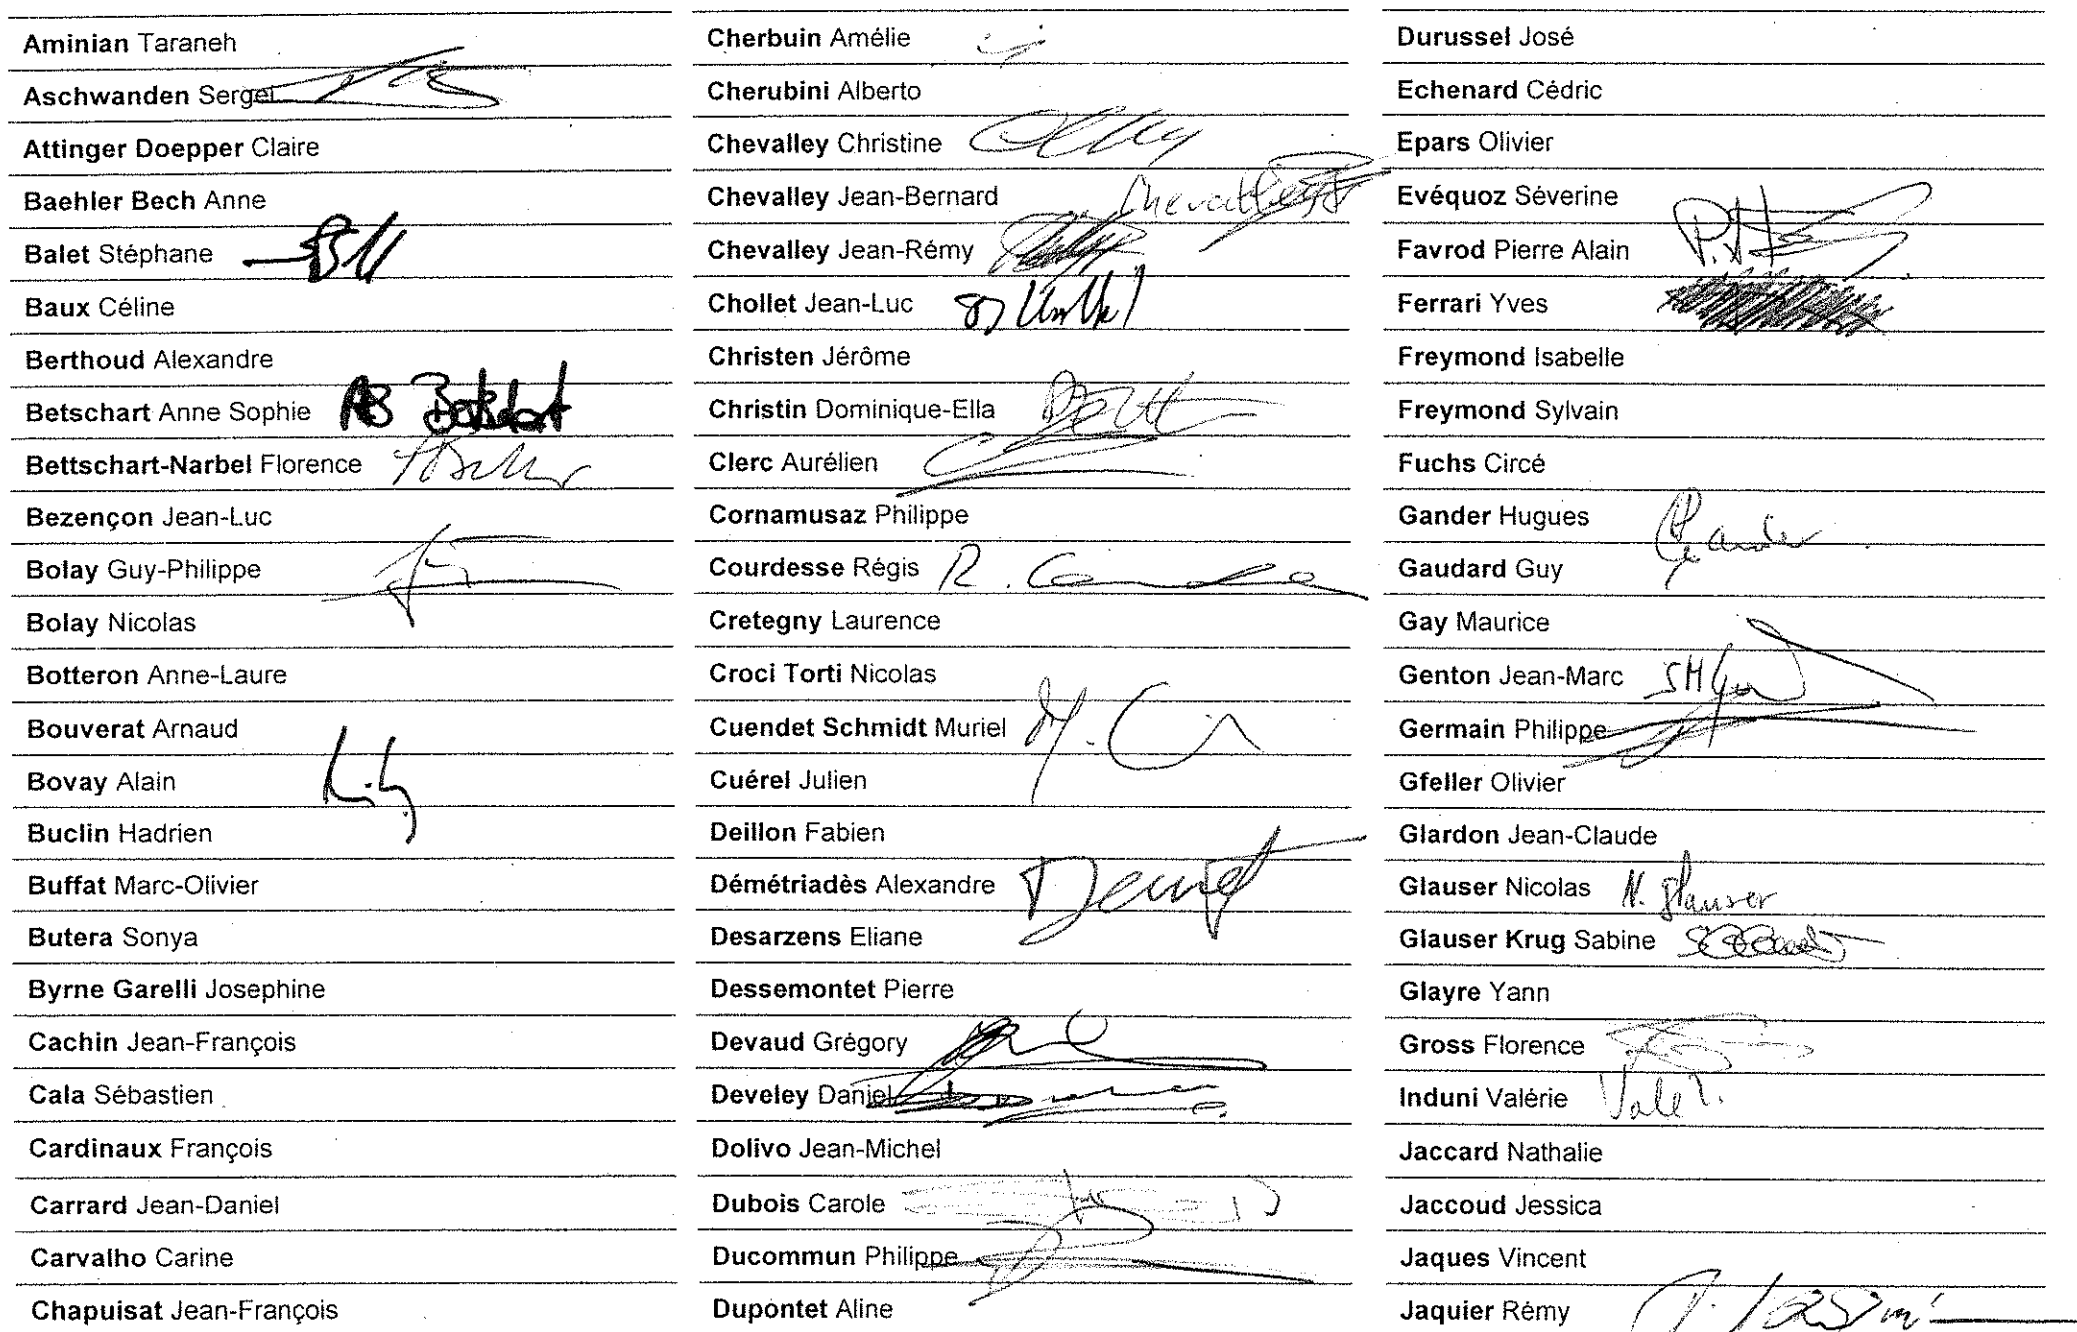 Aminian Taraneh
Aschwanden Sergei
Attinger Doepper Claire
Baehler Bech Anne
Balet Stéphane
Baux Céline
Berthoud Alexandre
Betschart Anne Sophie AB Betschart
Bettschart-Narbel Florence
Bezençon Jean-Luc
Bolay Guy-Philippe
Bolay Nicolas
Botteron Anne-Laure
Bouverat Arnaud
Bovay Alain
Buclin Hadrien
Buffat Marc-Olivier
Butera Sonya
Byrne Garelli Josephine
Cachin Jean-François
Cala Sébastien
Cardinaux François
Carrard Jean-Daniel
Carvalho Carine
Chapuisat Jean-François
Cherbuin Amélie
Cherubini Alberto
Chevalley Christine
Chevalley Jean-Bernard
Chevalley Jean-Rémy
Chollet Jean-Luc
Christen Jérôme
Christin Dominique-Ella
Clerc Aurélien
Cornamusaz Philippe
Courdesse Régis R.
Cretegny Laurence
Croci Torti Nicolas
Cuendet Schmidt Muriel M.
Cuérel Julien
Deillon Fabien
Démétriadès Alexandre
Desarzens Eliane
Dessemontet Pierre
Devaud Grégory
Develey Daniel
Dolivo Jean-Michel
Dubois Carole
Ducommun Philippe
Dupontet Aline
Durussel José
Echenard Cédric
Epars Olivier
Evéquoz Séverine
Favrod Pierre Alain
Ferrari Yves
Freymond Isabelle
Freymond Sylvain
Fuchs Circé
Gander Hugues Gander
Gaudard Guy
Gay Maurice
Genton Jean-Marc
Germain Philippe
Gfeller Olivier
Glardon Jean-Claude
Glauser Nicolas N. Glauser
Glauser Krug Sabine
Glayre Yann
Gross Florence
Induni Valérie
Jaccard Nathalie
Jaccoud Jessica
Jaques Vincent
Jaquier Rémy